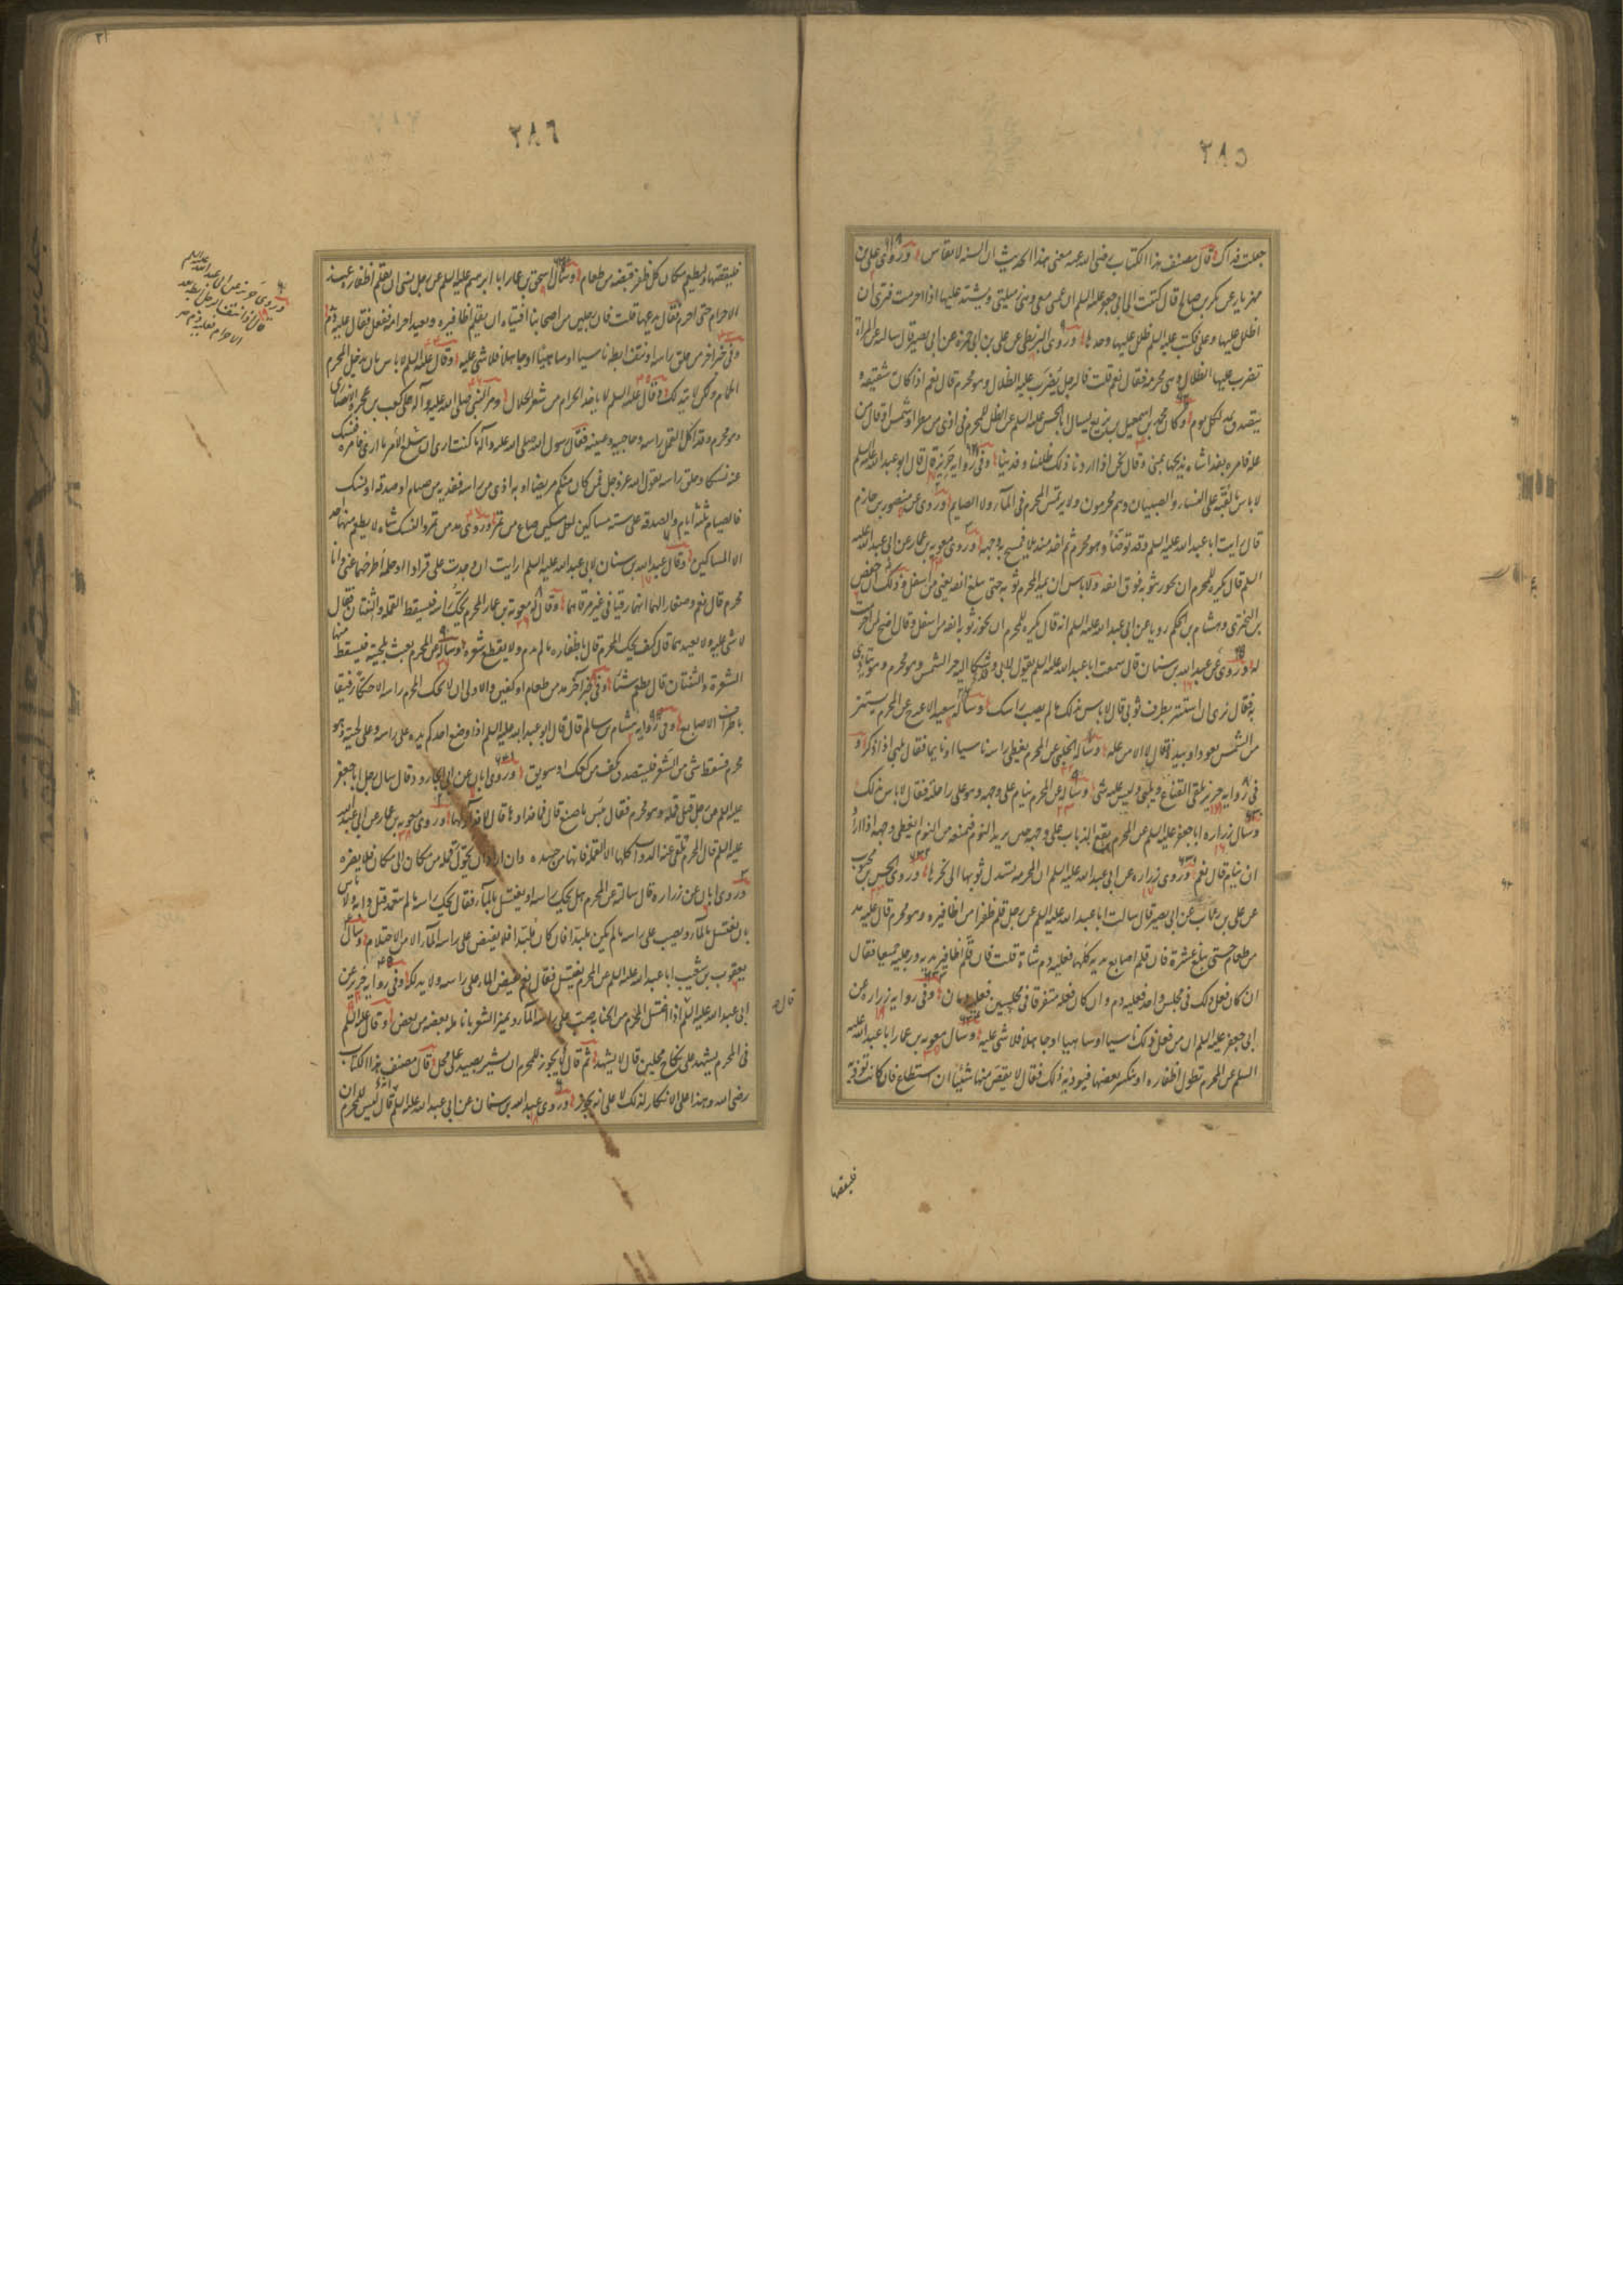 ٢٨٥
جعلت فداك قال مصنف هذا الكتاب رضى الله عنه معنى هذا الحديث ان السنه لا تقاس وروى على بن
مهزيار عن بكر بن صالح قال كتبت الى ابى جعفر عليه السلم ان عمتى معى وهى زميلتى ويشتد عليها اذا احرمت فترى ان
اظلل عليها وعلى فكتب عليه السلم ظلل عليها وحدها وروى البزنطى عن على بن ابى حمزه عن ابى بصير قال سالته عن المراة
تضرب عليها الظلال وهى محرمه فقال نعم قلت فالرجل يضرب عليه الظلال وهو محرم قال نعم اذا كانت شقيقه
يتصدق بمد لكل يوم وكان محمد بن اسمعيل بن بزيع يسال ابا الحسن عليه السلم عن الظل للمحرم فى اذى من مطر او شمس او قال من
عله فامره بفداء شاة يذبحها بمنى وقال نحن اذا اردنا ذلك ظللنا وفدينا وفى روايه حريز قال قال ابو عبد الله عليه السلم
لا باس بالقبه على النساء والصبيان وهم محرمون ولا يرتمس المحرم فى الماء ولا الصايم وروى عن منصور بن حازم
قال رايت ابا عبد الله عليه السلم وقد توضأ وهو محرم ثم اخذ منديلا فمسح به وجهه وروى معويه بن عمار عن ابى عبد الله عليه
السلم قال يكره للمحرم ان يجوز ثوبه فوق انفه ولا باس ان يمد المحرم ثوبه حتى يبلغ انفه يعنى من اسفل وذلك ان حفص
بن البخترى وهشام بن الحكم رويا عن ابى عبد الله عليه السلم انه قال يكره للمحرم ان يجوز ثوبه انفه من اسفل وقال اضح لمن احرمت
له وروى عن عبد الله بن سنان قال سمعت ابا عبد الله عليه السلم يقول لابى وشكا اليه حر الشمس وهو محرم وهو يتاذى
به فقال ترى ان استتر بطرف ثوبى قال لا باس بذلك ما لم يصب راسك وساله سعيد الاعرج عن المحرم يستتر
من الشمس بعود او بيده قال لا الا من عله وساله الحلبى عن المحرم يغطى راسه ناسيا او نايما فقال يلبى اذا ذكر و
فى روايه حريز يلقى القناع ويلبى وليس عليه شى وساله عن المحرم ينام على وجهه وهو على راحلته فقال لا باس بذلك
وسال زراره ابا جعفر عليه السلم عن المحرم يقع الذباب على وجهه حين يريد النوم فيمنعه من النوم ايغطى وجهه اذا اراد
ان ينام قال نعم وروى زراره عن ابى عبد الله عليه السلم ان المحرمه تسدل ثوبها الى نحرها وروى الحسن بن محبوب
عن على بن رئاب عن ابى بصير قال سالت ابا عبد الله عليه السلم عن رجل قلم ظفرا من اظافيره وهو محرم قال عليه مد
من طعام حتى يبلغ عشرة فان قلم اصابع يديه كلها فعليه دم شاة قلت فان قلم اظافير يديه ورجليه جميعا فقال
ان كان فعل ذلك فى مجلس واحد فعليه دم وان كان فعله متفرقا فى مجلسين فعليه دمان وفى روايه زراره عن
ابى جعفر عليه السلم ان من فعل ذلك ناسيا او ساهيا او جاهلا فلا شى عليه وسال معويه بن عمار ابا عبد الله عليه
السلم عن المحرم تطول اظفاره او ينكسر بعضها فيوذيه ذلك فقال لا يقص منها شيئا ان استطاع فان كانت توذيه
فليقصها
٢٨٦
فليقصها وليطعم مكان كل ظفر قبضه من طعام وسال اسحق بن عمار ابا ابرهيم عليه السلم عن رجل نسى ان يقلم اظفاره عند
الاحرام حتى احرم فقال يدعها قلت فان رجلا من اصحابنا افتاه ان يقلم اظافيره ويعيد احرامه ففعل فقال عليه دم
وفى خبر اخر من حلق راسه او نتف ابطه ناسيا او ساهيا او جاهلا فلا شى عليه وقال عليه السلم لا باس بان يدخل المحرم
الحمام ولكن لا يتدلك وقال عليه السلم لا ياخذ الحرام من شعر الحلال ومر النبى صلى الله عليه وآله على كعب بن عجرة الانصارى
وهو محرم وقد اكل القمل راسه وحاجبيه وعينيه فقال رسول الله صلى الله عليه وآله ما كنت ارى ان يبلغ الامر ما ارى فامره فنسك
عنه نسكا وحلق راسه لقول الله عز وجل فمن كان منكم مريضا او به اذى من راسه ففديه من صيام او صدقه او نسك
فالصيام ثلثة ايام والصدقه على سته مساكين لكل مسكين صاع من تمر وروى مد من تمر والنسك شاه لا يطعم منها احد
الا المساكين وقال عبد الله بن سنان لابى عبد الله عليه السلم ارايت ان وجدت على قرادا او حلمه اطرحهما عنى وانا
محرم قال نعم وصغار لهما انهما رقيا فى غير مرقاهما وقال له معويه بن عمار المحرم يحك راسه فيسقط القمله والثنتان فقال
لا شى عليه ولا يعيدهما قال كيف يحك المحرم قال باظفاره ما لم يدم ولا يقطع شعره وساله عن المحرم يعبث بلحيته فيسقط منها
الشعرة والثنتان قال يطعم شيئا وفى خبر آخر مد من طعام او كفين والاولى ان لا يحك المحرم راسه الا حكا رفيقا
باطراف الاصابع وفى روايه هشام بن سالم قال قال ابو عبد الله عليه السلم اذا وضع احدكم يده على راسه وعلى لحيته وهو
محرم فسقط شى من الشعر فليتصدق بكف من كعك او سويق وروى ابان عن ابى الجارود قال سال رجل ابا جعفر
عليه السلم عن رجل قتل قمله وهو محرم فقال بئس ما صنع قال فما فداوها قال لا فداء لها وروى معويه بن عمار عن ابى عبد الله
عليه السلم قال المحرم يلقى عنه الدواب كلها الا القمله فانها من جسده وان اراد ان يحول قمله من مكان الى مكان فلا يضره
وروى ابان عن زراره قال سالته عن المحرم هل يحك راسه او يغتسل بالماء فقال يحك راسه ما لم يتعمد قتل دابه ولا باس
بان يغتسل بالماء ويصب على راسه ما لم يكن ملبدا فان كان ملبدا فلا يفيض على راسه الماء الا من الاحتلام وسال
يعقوب بن شعيب ابا عبد الله عليه السلم عن المحرم يغتسل فقال نعم يفيض الماء على راسه ولا يدلكه وفى روايه حريز عن
ابى عبد الله عليه السلم اذا اغتسل المحرم من الجنابه صب على راسه الماء ويميز الشعر بانامله بعضه من بعض وقال عليه السلم
فى المحرم يشهد على نكاح محلين قال لا يشهد ثم قال يجوز للمحرم ان يشير بصيد على محل قال مصنف هذا الكتاب
رضى الله وهذا على الانكار لذلك لا على انه يجوز وروى عبد الله بن سنان عن ابى عبد الله عليه السلم انه قال ليس للمحرم ان
وروى حريز عن ابى عبد الله عليه السلم
قال اذا نتف الرجل ابطه بعد
الاحرام فعليه دم